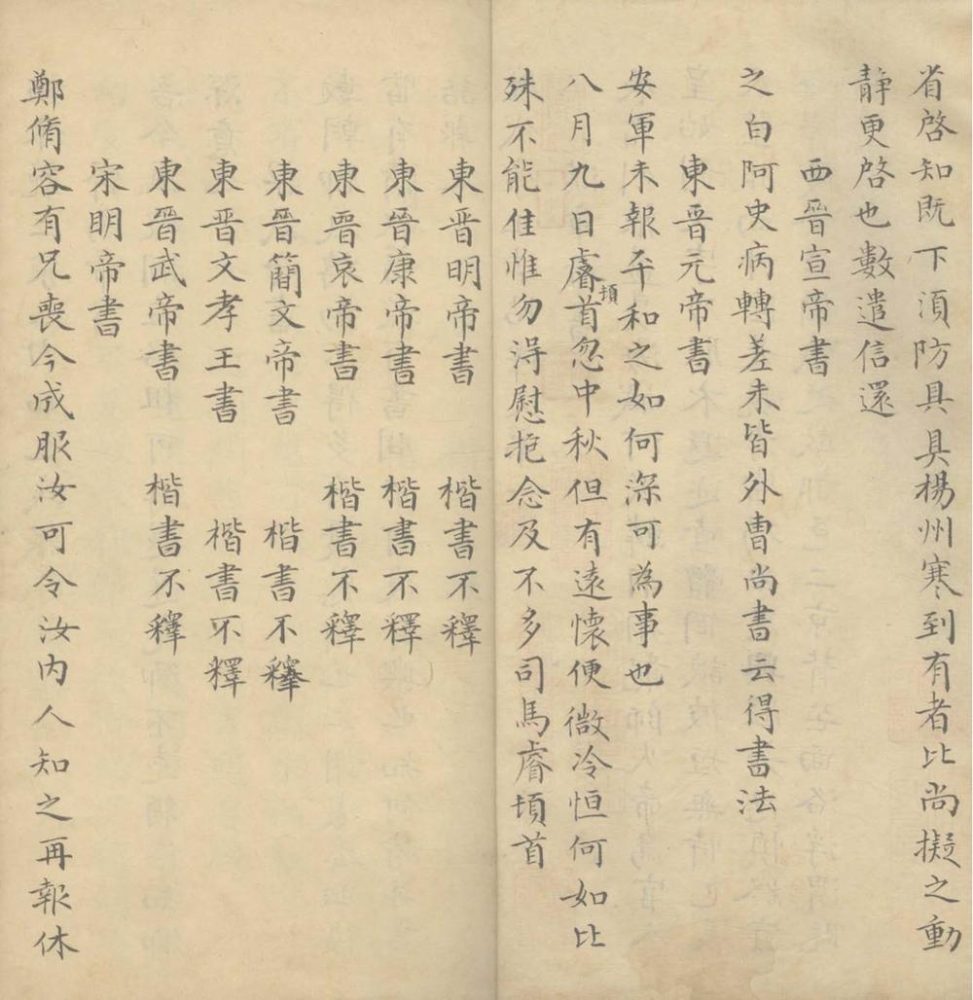 省啓知既下湏防具具楊州寒到有者比尚擬之動
静更啓也數遣信還
西晉宣帝書
之白阿史病轉差未皆外曺尚書云得書法
東晉元帝書
安軍未報平和之如何深可為事也
八月九日睿頓首忽中秋但有遠懷便微冷恒何如比
殊不能佳惟勿淂慰抱念及不多司馬睿頓首
東晉明帝書 楷書不釋
東晉康帝書 楷書不釋
東晉哀帝書 楷書不釋
東晉簡文帝書 楷書不釋
東晉文孝王書 楷書不釋
東晉武帝書 楷書不釋
宋明帝書
鄭脩容有兄喪今成服汝可令汝内人知之再報休